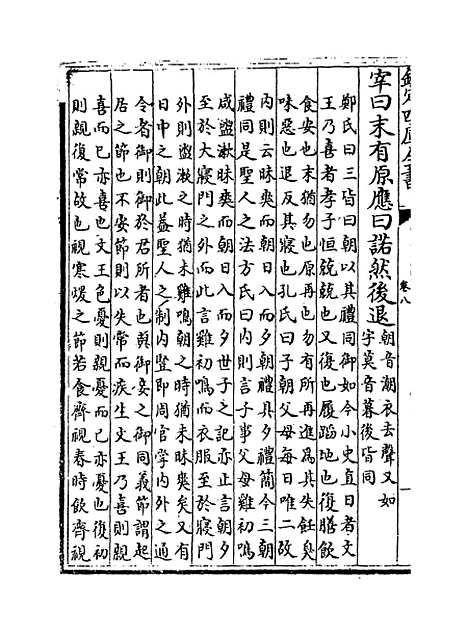 欽定四庫全書
卷八
宰曰末有原應曰諾然後退
朝音潮衣去聲又如
字莫音暮後皆同
鄭氏曰三皆曰朝以其禮同御如今小史直日者文
王乃喜者孝子恒兢兢也又復也履蹈地也復膳飲
食安也末猶勿也原再也勿有所再進為其失飪臭
味惡也退反其寢也孔氏曰子朝父母每日唯二故
内則云昧爽而朝日入而夕朝禮具夕禮簡今三朝
禮同是聖人之法方氏曰内則言子事父母雞初鳴
咸盥漱昧爽而朝日入而夕世子之記亦止言朝夕
至於大寢門之外而此言雞初鳴而衣服至於寢門
外則盥漱之時猶未雞鳴朝之時猶未昧爽矣又有
日中之朝此益聖人之制内豎即周官掌内外之通
令者御則御於君所者也與御妾之御同義節謂起
居之節也不安節則以失常而疾生文王乃喜則親
喜而已亦喜也文王色憂則親憂而已亦憂也復初
則親復常故也視寒煖之節若食齊視春時飲齊視